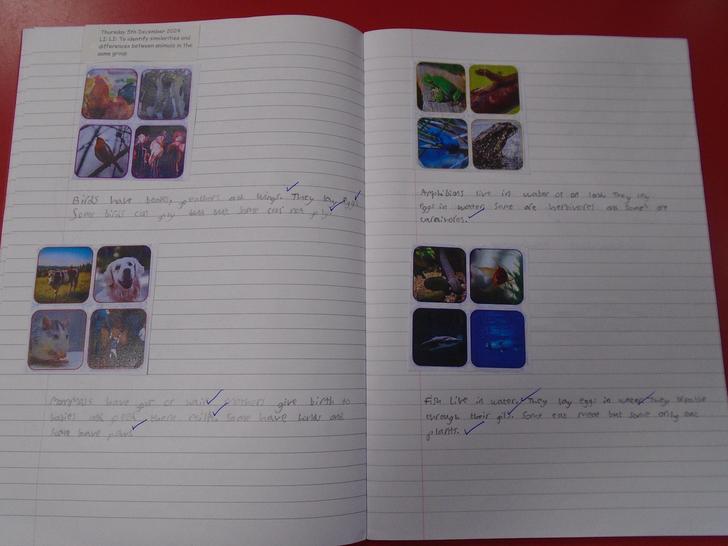 Thursday 5th December 2024
LI: LI: To identify similarities and
differences between animals in the
same group
Birds have beaks, feathers and wings. They lay eggs.
Some birds can fly but some can not fly.
Mammals have fur or hair. Mothers give birth to
babies and feed there milk. Some have hands and
some have paws
Amphibians live in water or on land. They lay
eggs in water. Some are herbivores and some are
carnivores.
Fish live in water. They lay eggs in water. They breathe
through their gils. Some eat meat but some only eat
plants.